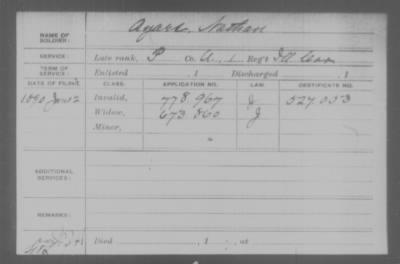 Ayars, Nathan
NAME OF SOLDIER:
SERVICE: Late rank, P Co. A, 1 Reg't Ill Cav
TERM OF SERVICE: Enlisted , 1 Discharged , 1
DATE OF FILING. CLASS. APPLICATION NO. LAW. CERTIFICATE NO.
1890 Invalid, 778.967 J 527.053
Widow, 673.860 J
Minor,
ADDITIONAL SERVICES:
REMARKS:
Died , 1 , at